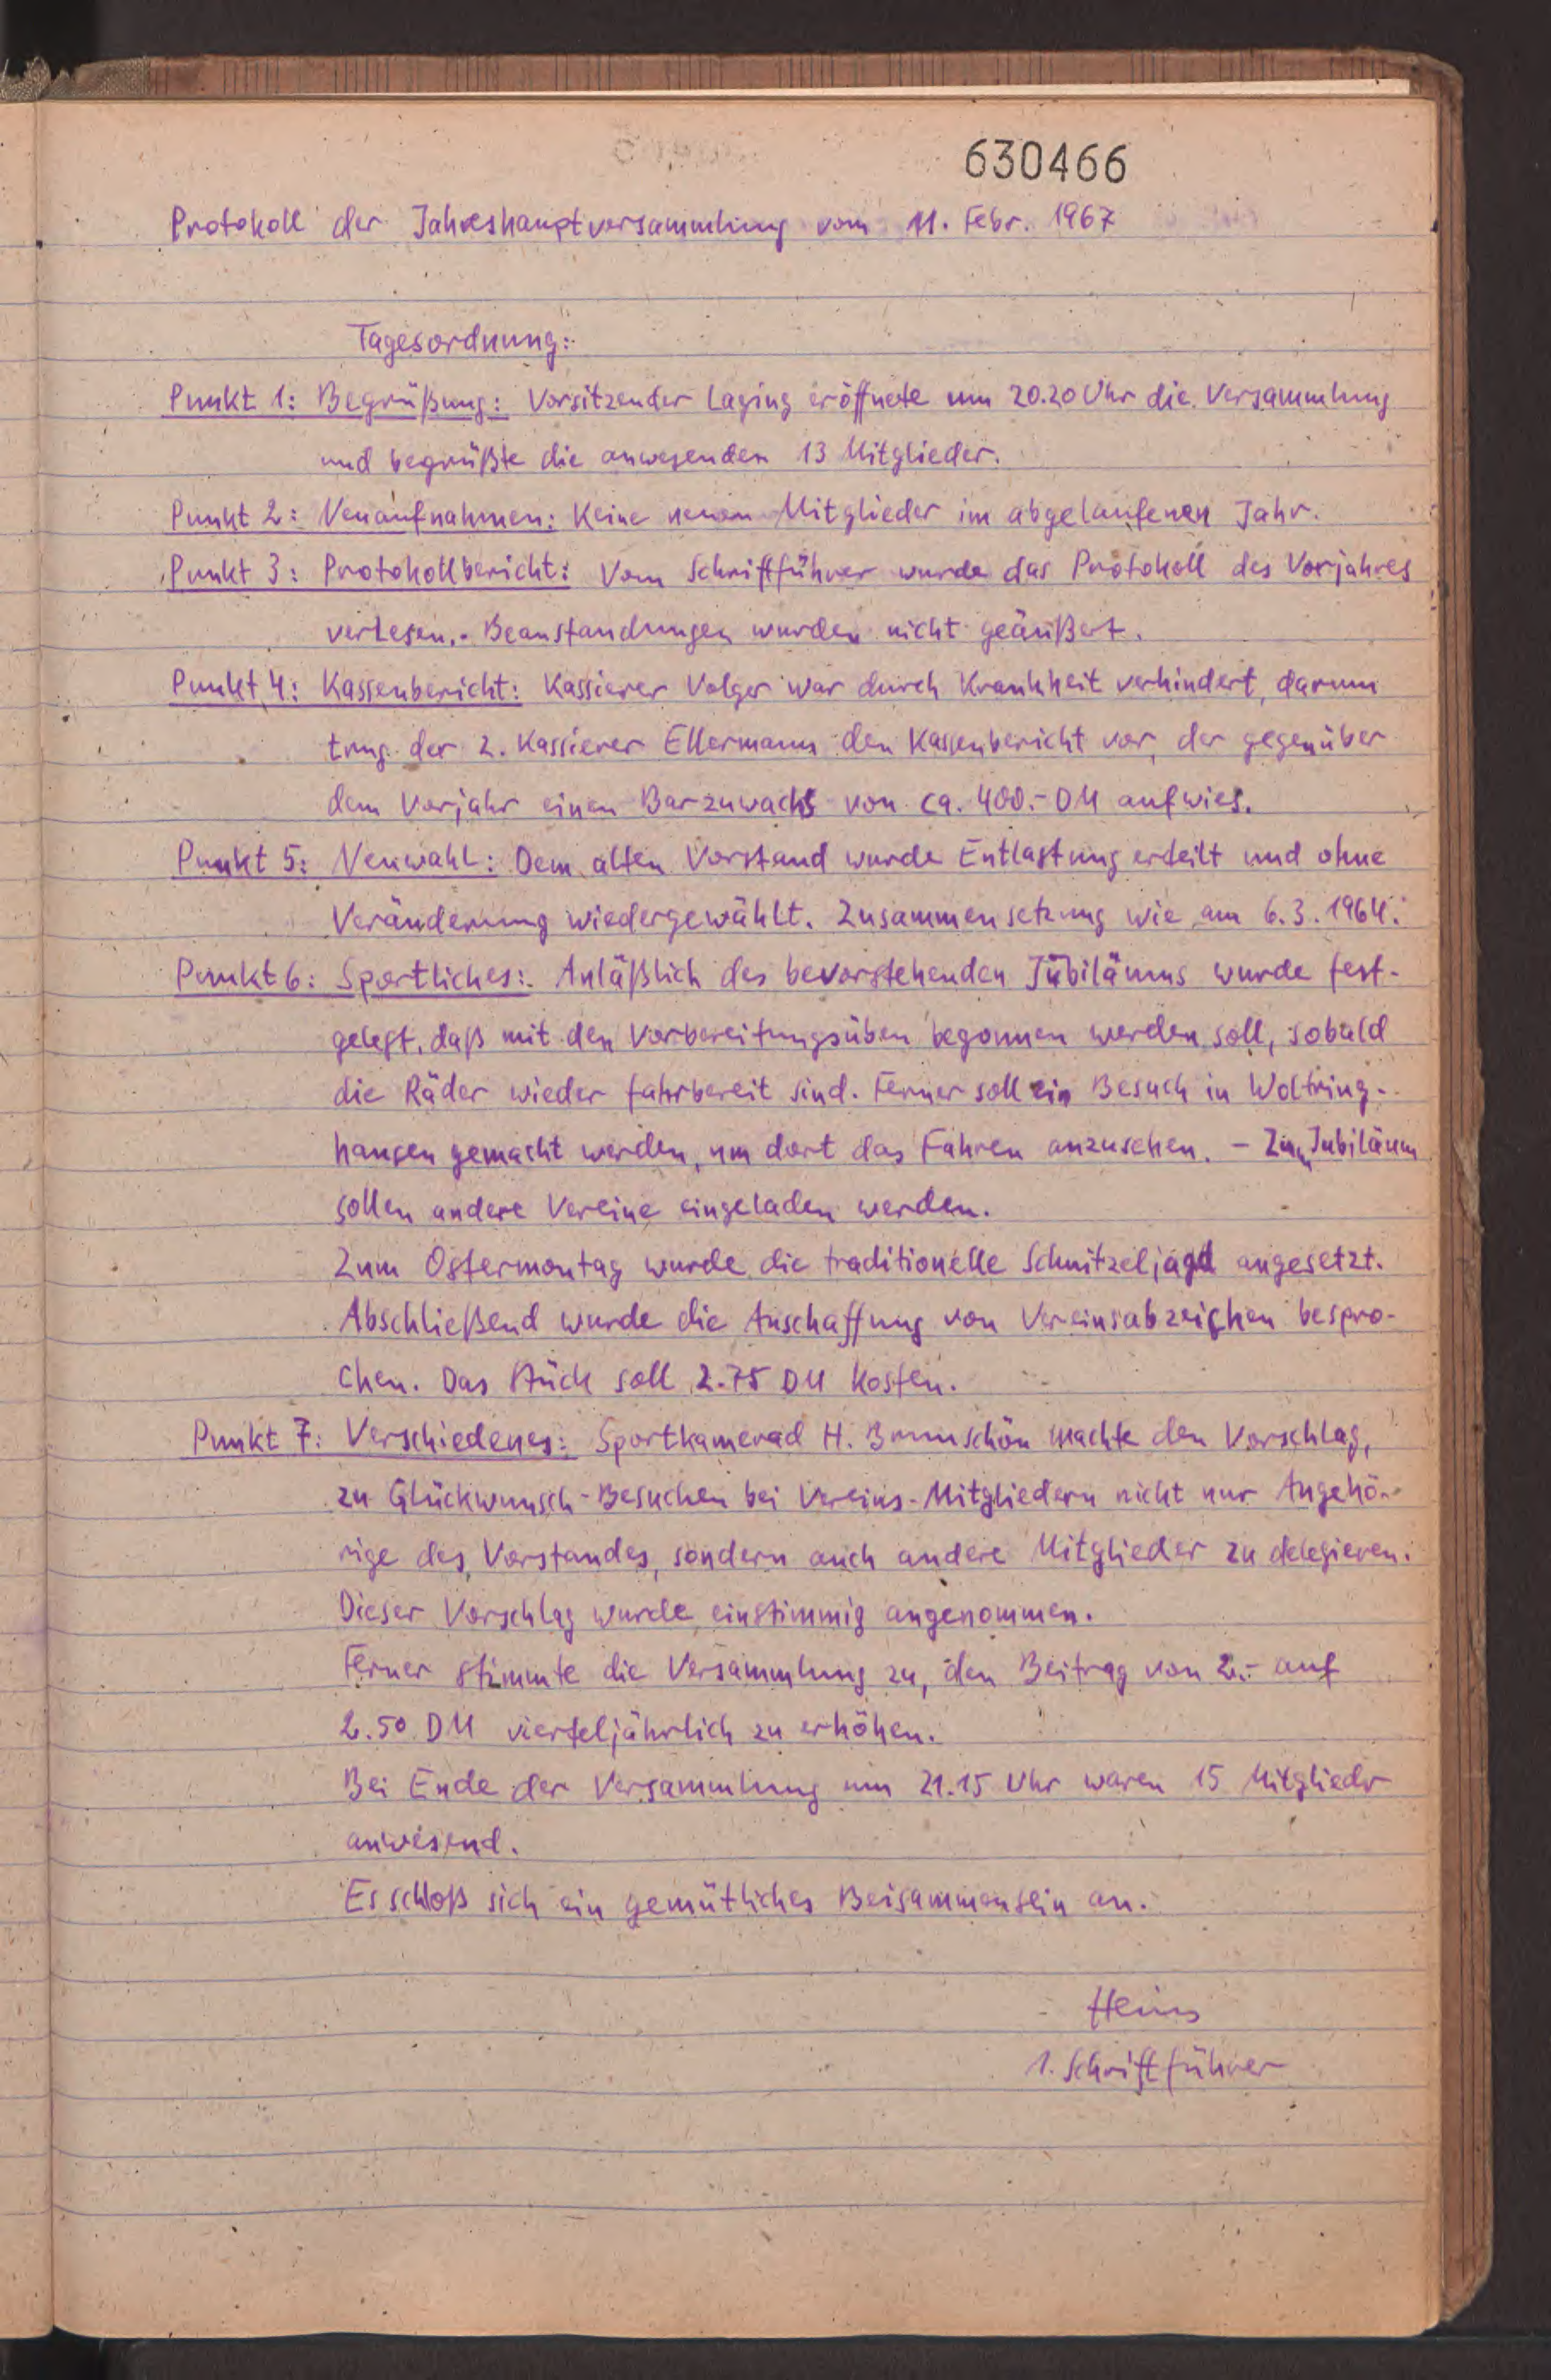 630466
Protokoll der Jahreshauptversammlung vom 11. Febr. 1967
Tagesordnung:
Punkt 1: Begrüßung: Vorsitzender Laging eröffnete um 20.20 Uhr die Versammlung
und begrüßte die anwesenden 13 Mitglieder.
Punkt 2: Neuaufnahmen: Keine neuen Mitglieder im abgelaufenen Jahr.
Punkt 3: Protokollbericht: Vom Schriftführer wurde das Protokoll des Vorjahres
verlesen.- Beanstandungen wurden nicht geäußert.
Punkt 4: Kassenbericht: Kassierer Volger war durch Krankheit verhindert, darum
trug der 2. Kassierer Ellermann den Kassenbericht vor, der gegenüber
dem Vorjahr einen Barzuwachs von ca. 400.- DM aufwies.
Punkt 5: Neuwahl: Dem alten Vorstand wurde Entlastung erteilt und ohne
Veränderung wiedergewählt. Zusammensetzung wie am 6.3.1964.
Punkt 6: Sportliches: Anläßlich des bevorstehenden Jubiläums wurde fest-
gelegt, daß mit den Vorbereitungsüben begonnen werden soll, sobald
die Räder wieder fahrbereit sind. Ferner soll ein Besuch in Woltring-
hausen gemacht werden, um dort das Fahren anzusehen. - Zum Jubiläum
sollen andere Vereine eingeladen werden.
Zum Ostermontag wurde die traditionelle Schnitzeljagd angesetzt.
Abschließend wurde die Anschaffung von Vereinsabzeichen bespro-
chen. Das Stück soll 2.75 DM kosten.
Punkt 7: Verschiedenes: Sportkamerad H. Brunschön machte den Vorschlag,
zu Glückwunsch-Besuchen bei Vereins-Mitgliedern nicht nur Angehö-
rige des Vorstandes, sondern auch andere Mitglieder zu delegieren.
Dieser Vorschlag wurde einstimmig angenommen.
Ferner stimmte die Versammlung zu, den Beitrag von 2.- auf
2.50 DM vierteljährlich zu erhöhen.
Bei Ende der Versammlung um 21.15 Uhr waren 15 Mitglieder
anwesend.
Es schloß sich ein gemütliches Beisammensein an.
Heins
1. Schriftführer